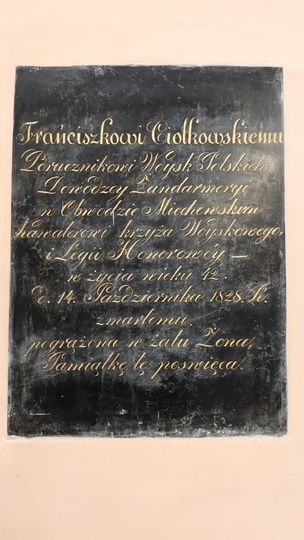 Frańciszkowi Ciołkowskiemu
Porucznikowi Woysk Polskich
Dowódzcy Żandarmergi
w Obwodzie Miechowskim
kawalerowi krzyża Woyskowego
i Legii Honorowéy —
w życia wieku 42.
d. 14. Października 1828. R.
zmarłemu.
pogrążona w żalu Żona,
Pamiątkę tę poswięca.